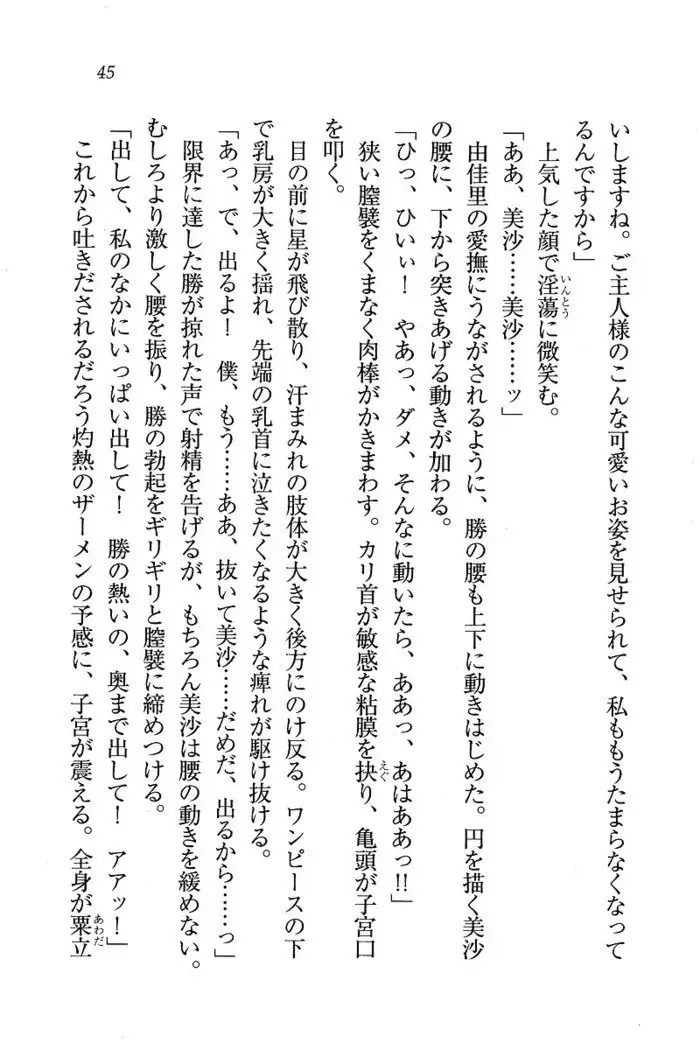 45
いしますね。ご主人様のこんな可愛いお姿を見せられて、私ももうたまらなくなって
るんですから」
上気した顔で淫蕩いんとうに微笑む。
「ああ、美沙……美沙……ッ」
由佳里の愛撫にうながされるように、勝の腰も上下に動きはじめた。円を描く美沙
の腰に、下から突きあげる動きが加わる。
「ひっ、ひいぃ！　やあっ、ダメ、そんなに動いたら、ああっ、あはああっ!!」
狭い膣襞をくまなく肉棒がかきまわす。カリ首が敏感な粘膜を抉えぐり、亀頭が子宮口
を叩く。
目の前に星が飛び散り、汗まみれの肢体が大きく後方にのけ反る。ワンピースの下
で乳房が大きく揺れ、先端の乳首に泣きたくなるような痺れが駆け抜ける。
「あっ、で、出るよ！　僕、もう……ああ、抜いて美沙……だめだ、出るから……っ」
限界に達した勝が掠れた声で射精を告げるが、もちろん美沙は腰の動きを緩めない。
むしろより激しく腰を振り、勝の勃起をギリギリと膣襞に締めつける。
「出して、私のなかにいっぱい出して！　勝の熱いの、奥まで出して！　アアッ！」
これから吐きだされるだろう灼熱のザーメンの予感に、子宮が震える。全身が粟立あわだ